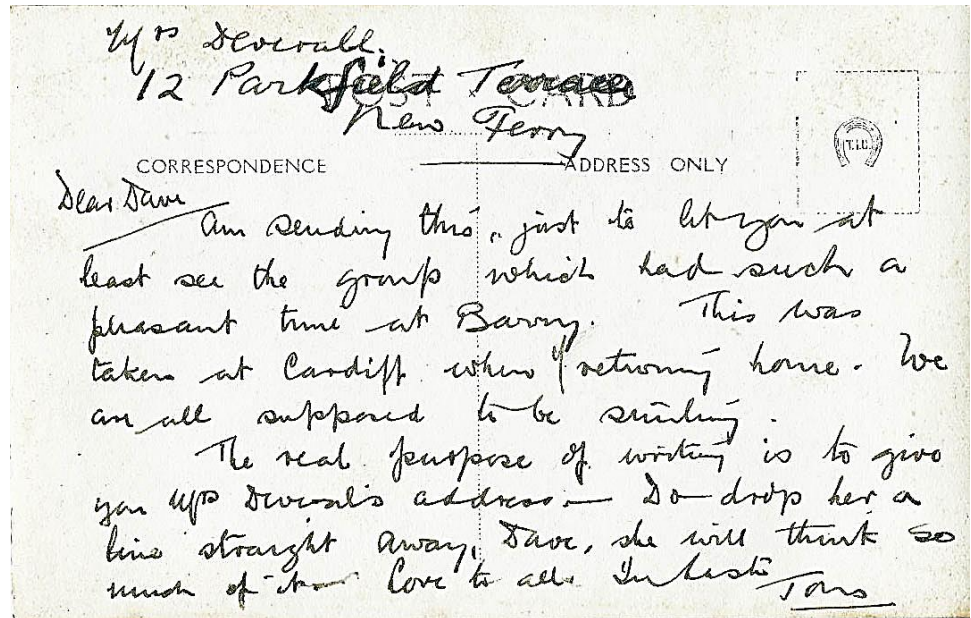 Mrs Deverall.
12 Parkfield Terrace
POST CARD
New Ferry
CORRESPONDENCE
ADDRESS ONLY
T.I.C.
Dear Dave
Am sending this, just to let you at
least see the group which had such a
pleasant time at Barry. This was
taken at Cardiff when returning home. We
are all supposed to be smiling.
The real purpose of writing is to give
you Mrs Deverall's address — Do drop her a
line straight away, Dave, she will think so
much of it — Love to all. In haste
Tom